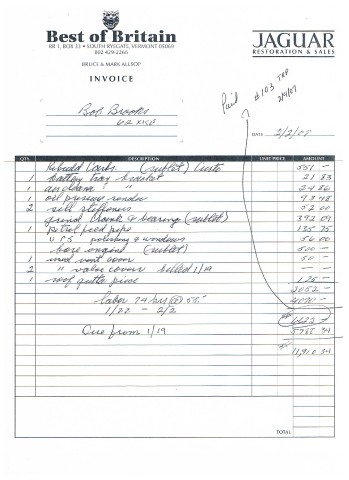 Best of Britain
RR 1, BOX 33 • SOUTH RYEGATE, VERMONT 05069
802 429-2266
JAGUAR
RESTORATION & SALES
BRUCE & MARK ALLSOP
INVOICE
Paid #103 TRP
2/4/09
Bob Brooks
DATE 2/2/09
QTY. DESCRIPTION UNIT PRICE AMOUNT
Rebuild Carbs. (sublet) 551 -
1 battery tray bracket 21 83
1 " 24 86
1 oil pressure sender 93 48
2 sill stiffeners 52 00
grind crank & bearing (sublet) 392 09
1 Petrol feed pipe 135 75
UPS 56 00
bore engine (sublet) 500 -
1 used vent cover 50 -
2 " valve covers billed 1/19
1 roof gutter piece 125 -
2052 -
labor 74 hrs @ 55.- 4070 -
1/22 - 2/2
6122 -
Due from 1/19 5788 34
11,910 34
TOTAL